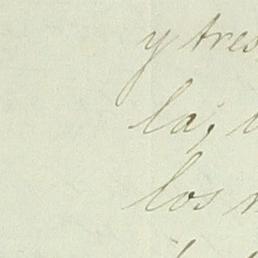 y tres
la;
los